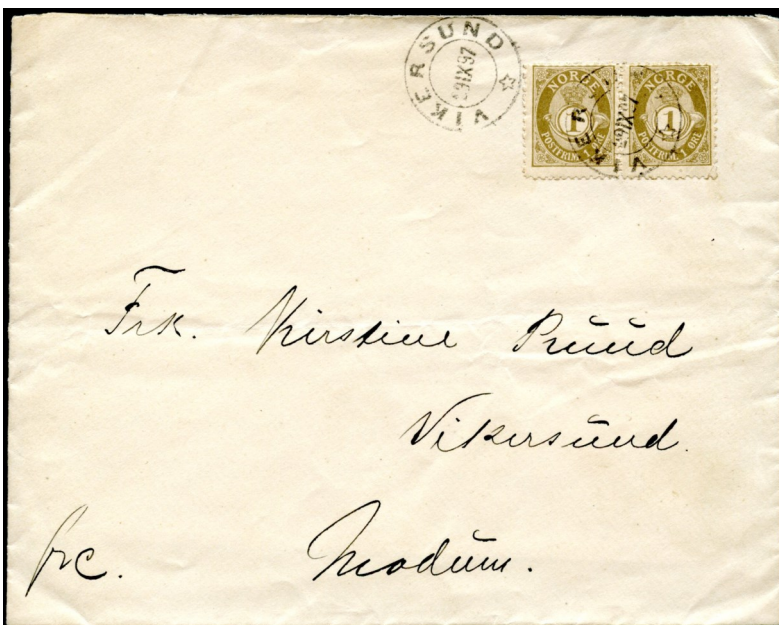 VIKERSUND
29 IX 97
NORGE NORGE
1 1
POSTFRIM. 1 ØRE POSTFRIM. 1 ØRE
Frk. Kirstine Ruud
Vikersund.
frc. Modum.